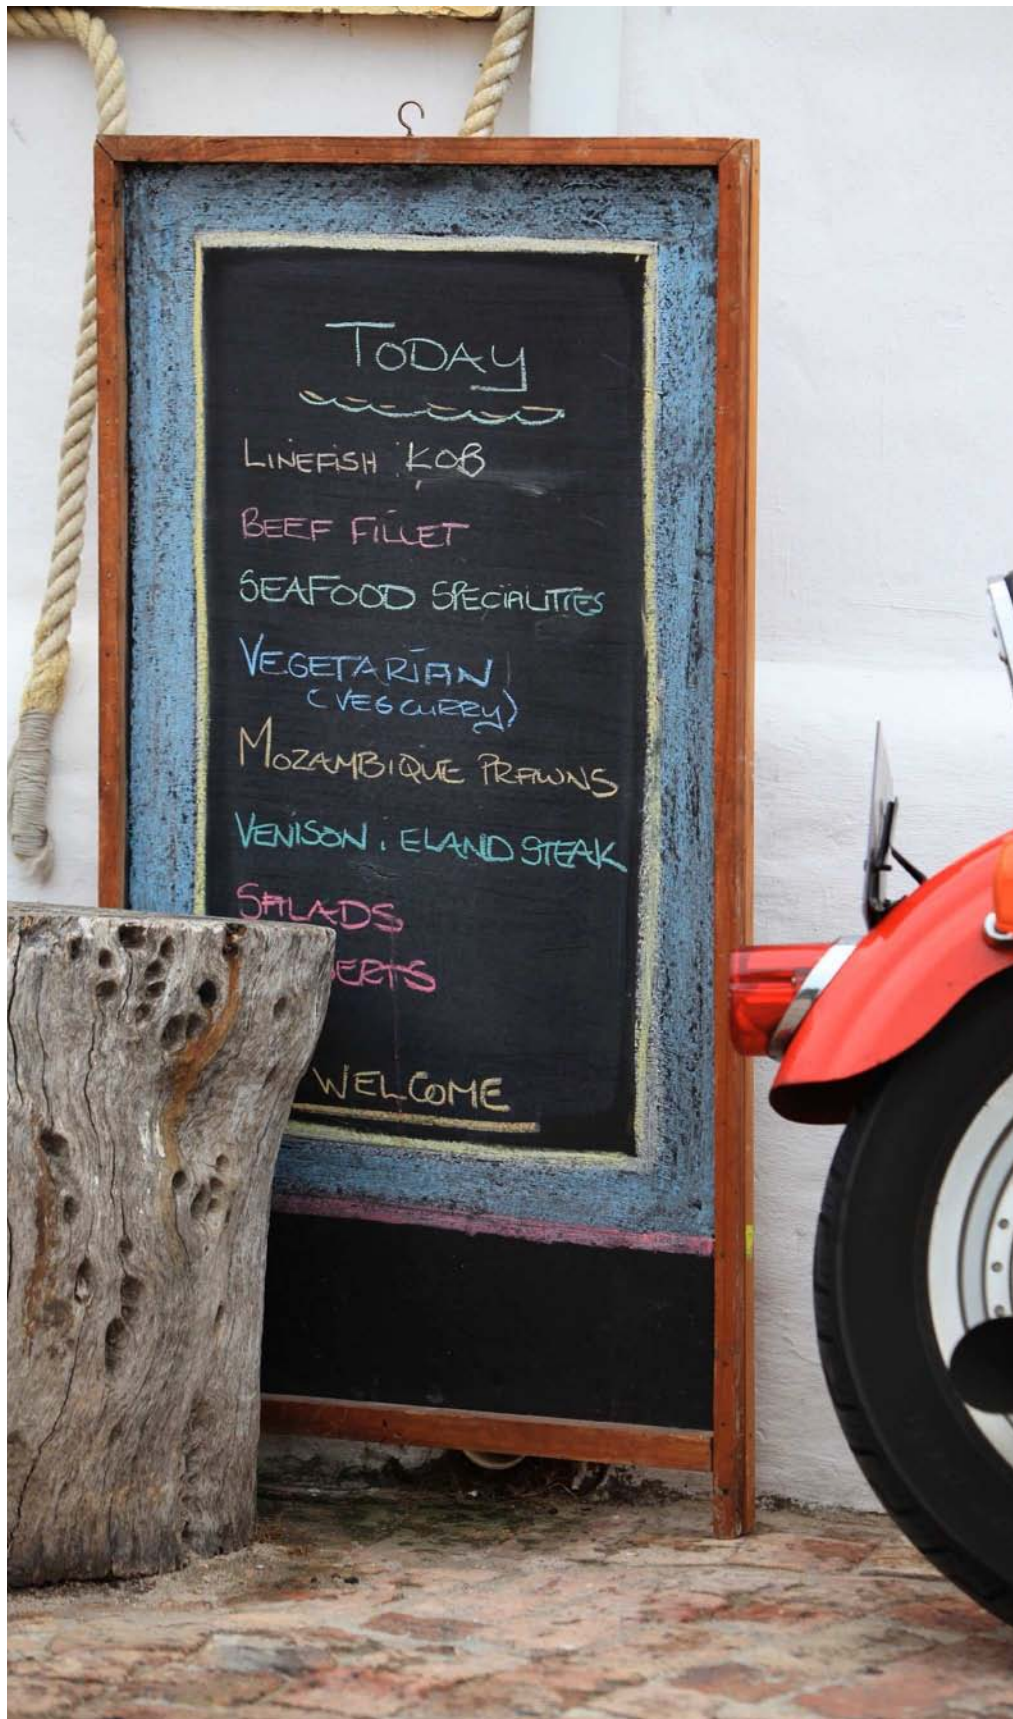 TODAY
LINEFISH : KOB
BEEF FILLET
SEAFOOD SPECIALITIES
VEGETARIAN
(VEG CURRY)
MOZAMBIQUE PRAWNS
VENISON : ELAND STEAK
SALADS
WELCOME